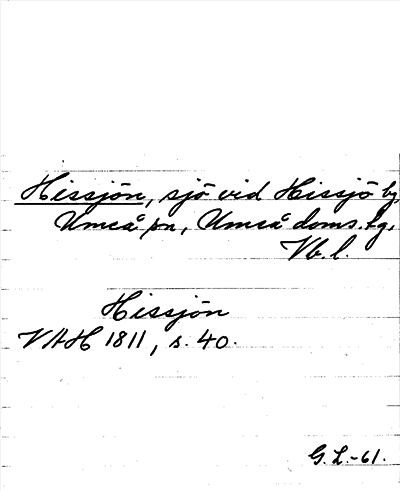 Hissjön, sjö vid Hissjö by,
Umeå sn, Umeå doms. tg,
Vb. l.
Hissjön
VAH 1811, s. 40.
G. L.-61.